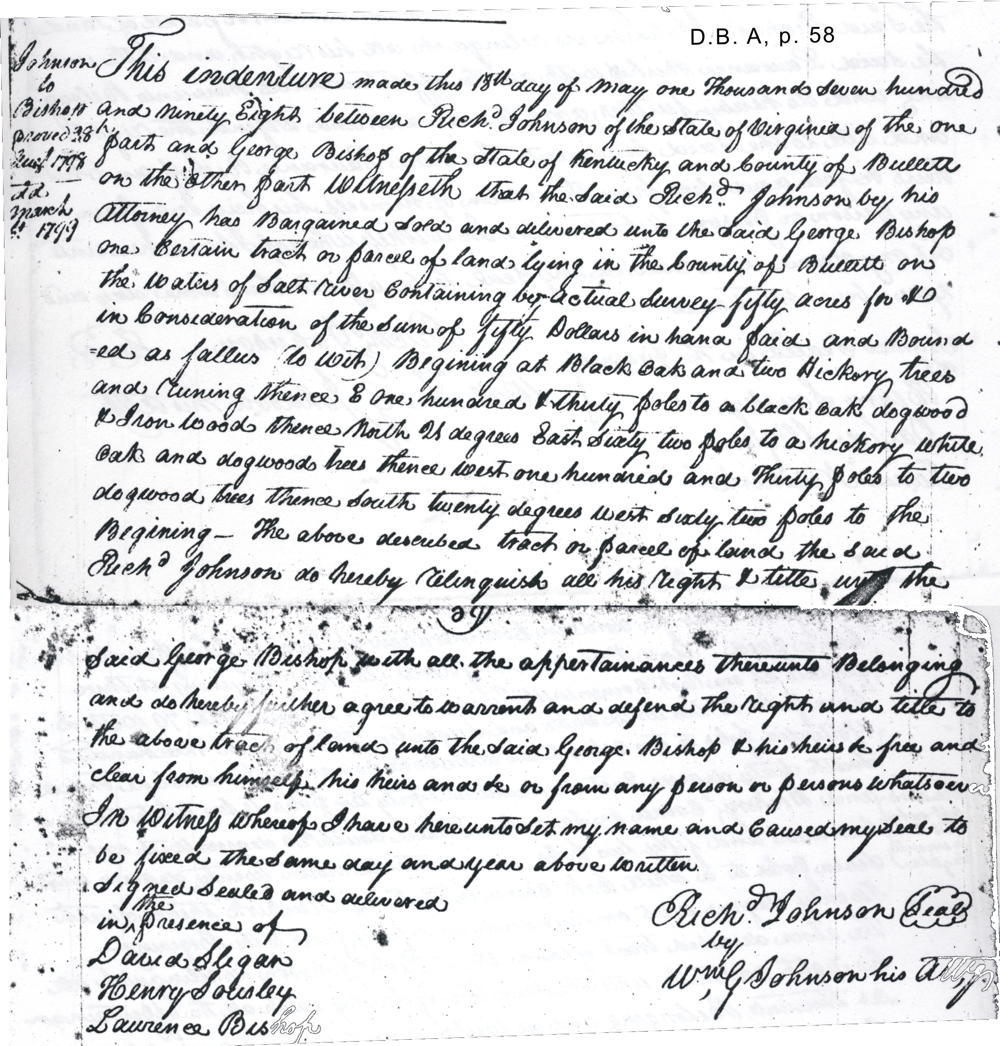 D.B. A, p. 58
Johnson
to
Bishop
proved 28th
Augt 1798
dd
march
1st 1799
This indenture made this 18th day of may one Thousand Seven hundred
and Ninety Eight between Richd. Johnson of the State of Virginia of the one
part and George Bishop of the State of Kentucky and County of Bullett
on the other part Witnesseth that the Said Richd. Johnson by his
Attorney has Bargained Sold and delivered unto the Said George Bishop
one Certain tract or parcel of land lying in the County of Bullett on
the waters of Salt river Containing by actual Survey fifty acres for &
in Consideration of the Sum of fifty Dollars in hand paid and Bound
=ed as fallus (to wit) Begining at Black oak and two Hickory trees
and runing thence E one hundred & thirty poles to a black oak dogwood
& Iron wood thence North 21 degrees East Sixty two poles to a hickory white
oak and dogwood trees thence west one hundred and Thirty poles to two
dogwood trees thence South twenty degrees west Sixty two poles to the
Begining — The above described tract or parcel of land the Said
Richd Johnson do hereby relinquish all his right & title unto the
59
Said George Bishop with all the appertainances thereunto Belonging
and do hereby further agree to warrent and defend the right and title to
the above tract of land unto the Said George Bishop & his heirs & free and
clear from himself, his heirs and &c or from any person or persons whatsoever
In Witness Whereof I have hereunto Set my name and Caused my Seal to
be fixed the Same day and year above written
Signed Sealed and delivered
in the presence of
David Slegan
Henry Sousley
Lawrence Bishop
Richd Johnson Seal
by
Wm G Johnson his Atty